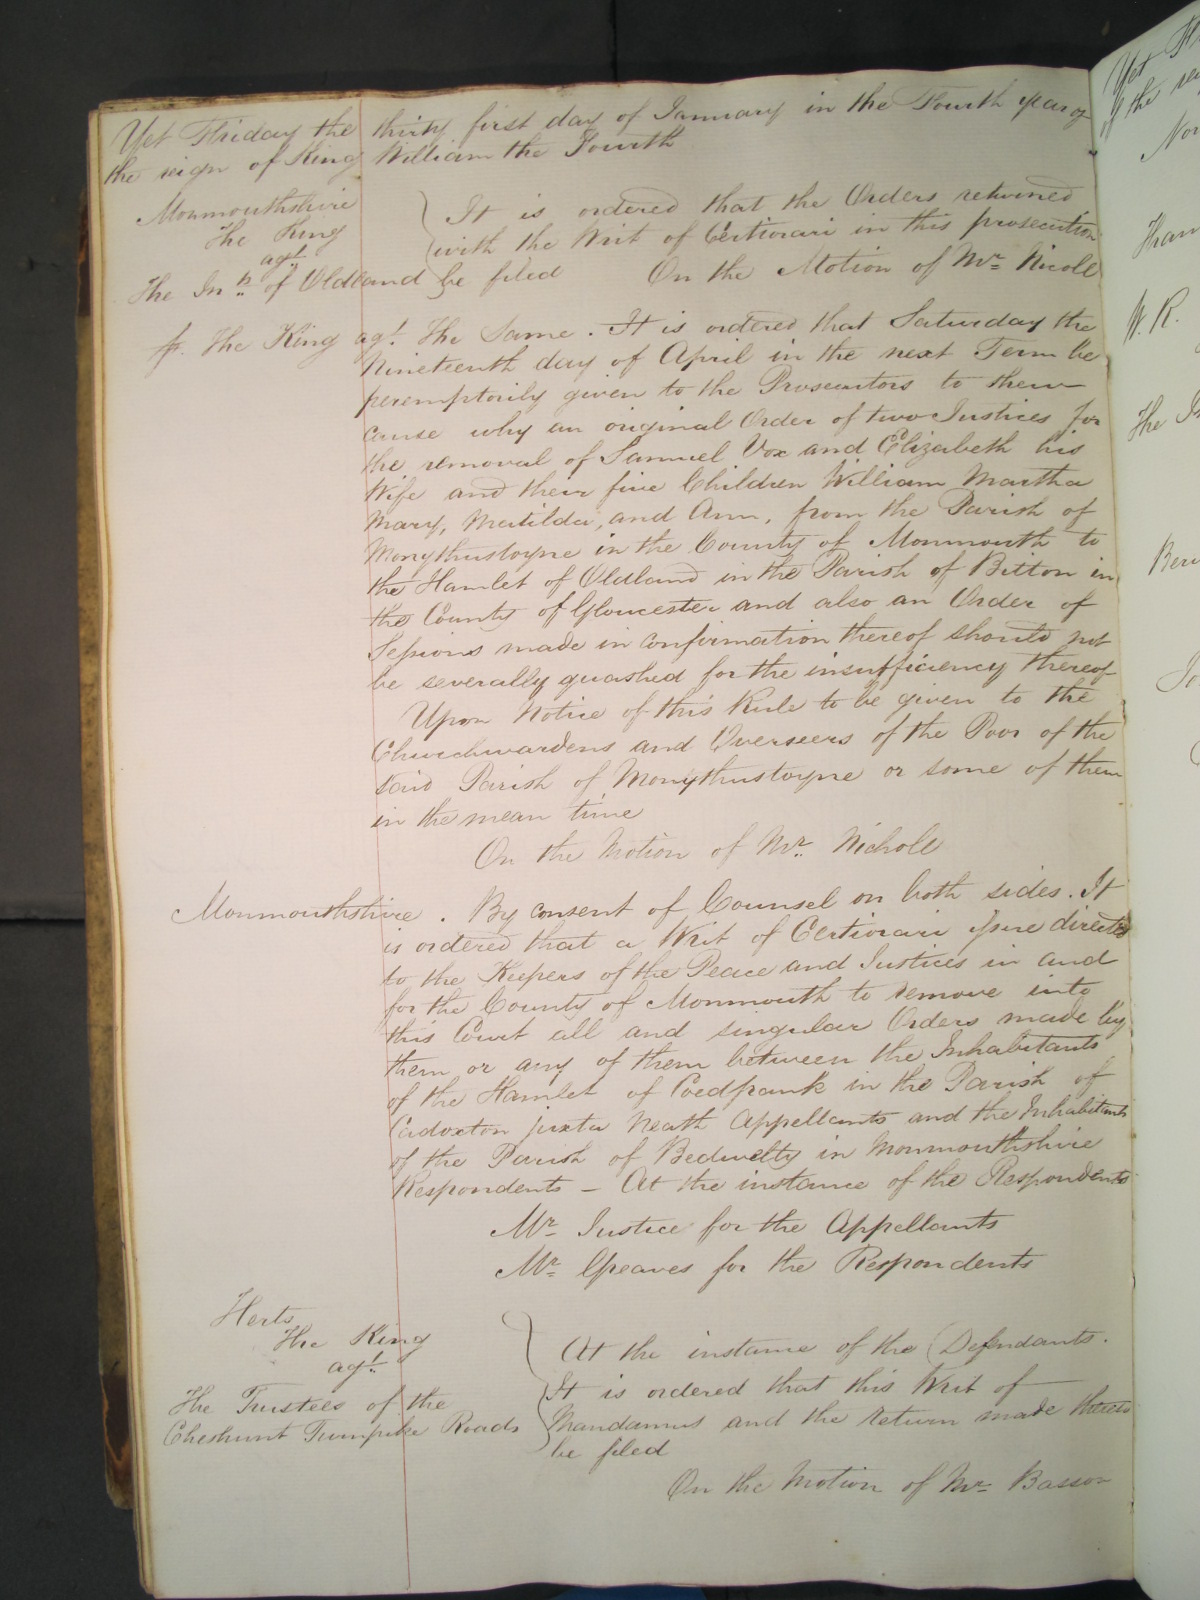 Yet Friday the thirty first day of January in the Fourth year of
the reign of King William the Fourth
Monmouthshire
The King
agt.
The Inhts. of Oldland
It is ordered that the Orders returned
with the Writ of Certiorari in this prosecution
be filed On the Motion of Mr. Nicoll
The King agt. The Same. It is ordered that Saturday the
Nineteenth day of April in the next Term be
peremptorily given to the Prosecutors to shew
cause why an original Order of two Justices for
the removal of Samuel Vox and Elizabeth his
Wife and their five Children William Martha
Mary, Matilda, and Ann, from the Parish of
Monythustoyne in the County of Monmouth to
the Hamlet of Oldland in the Parish of Bitton in
the County of Gloucester and also an Order of
Sessions made in confirmation thereof should not
be severally quashed for the insufficiency thereof
Upon Notice of this Rule to be given to the
Churchwardens and Overseers of the Poor of the
said Parish of Monythustoyne or some of them
in the mean time
On the Motion of Mr. Nicholl
Monmouthshire. By consent of Counsel on both sides. It
is ordered that a Writ of Certiorari issue directed
to the Keepers of the Peace and Justices in and
for the County of Monmouth to remove into
this Court all and singular Orders made by
them or any of them between the Inhabitants
of the Hamlet of Coedfrank in the Parish of
Cadoxton juxta Neath Appellants and the Inhabitants
of the Parish of Bedwelty in Monmouthshire
Respondents – At the instance of the Respondents
Mr. Justice for the Appellants
Mr. Greaves for the Respondents
Herts
The King
agt.
The Trustees of the
Cheshunt Turnpike Roads
At the instance of the Defendants.
It is ordered that this Writ of
Mandamus and the return made thereto
be filed
On the Motion of Mr.